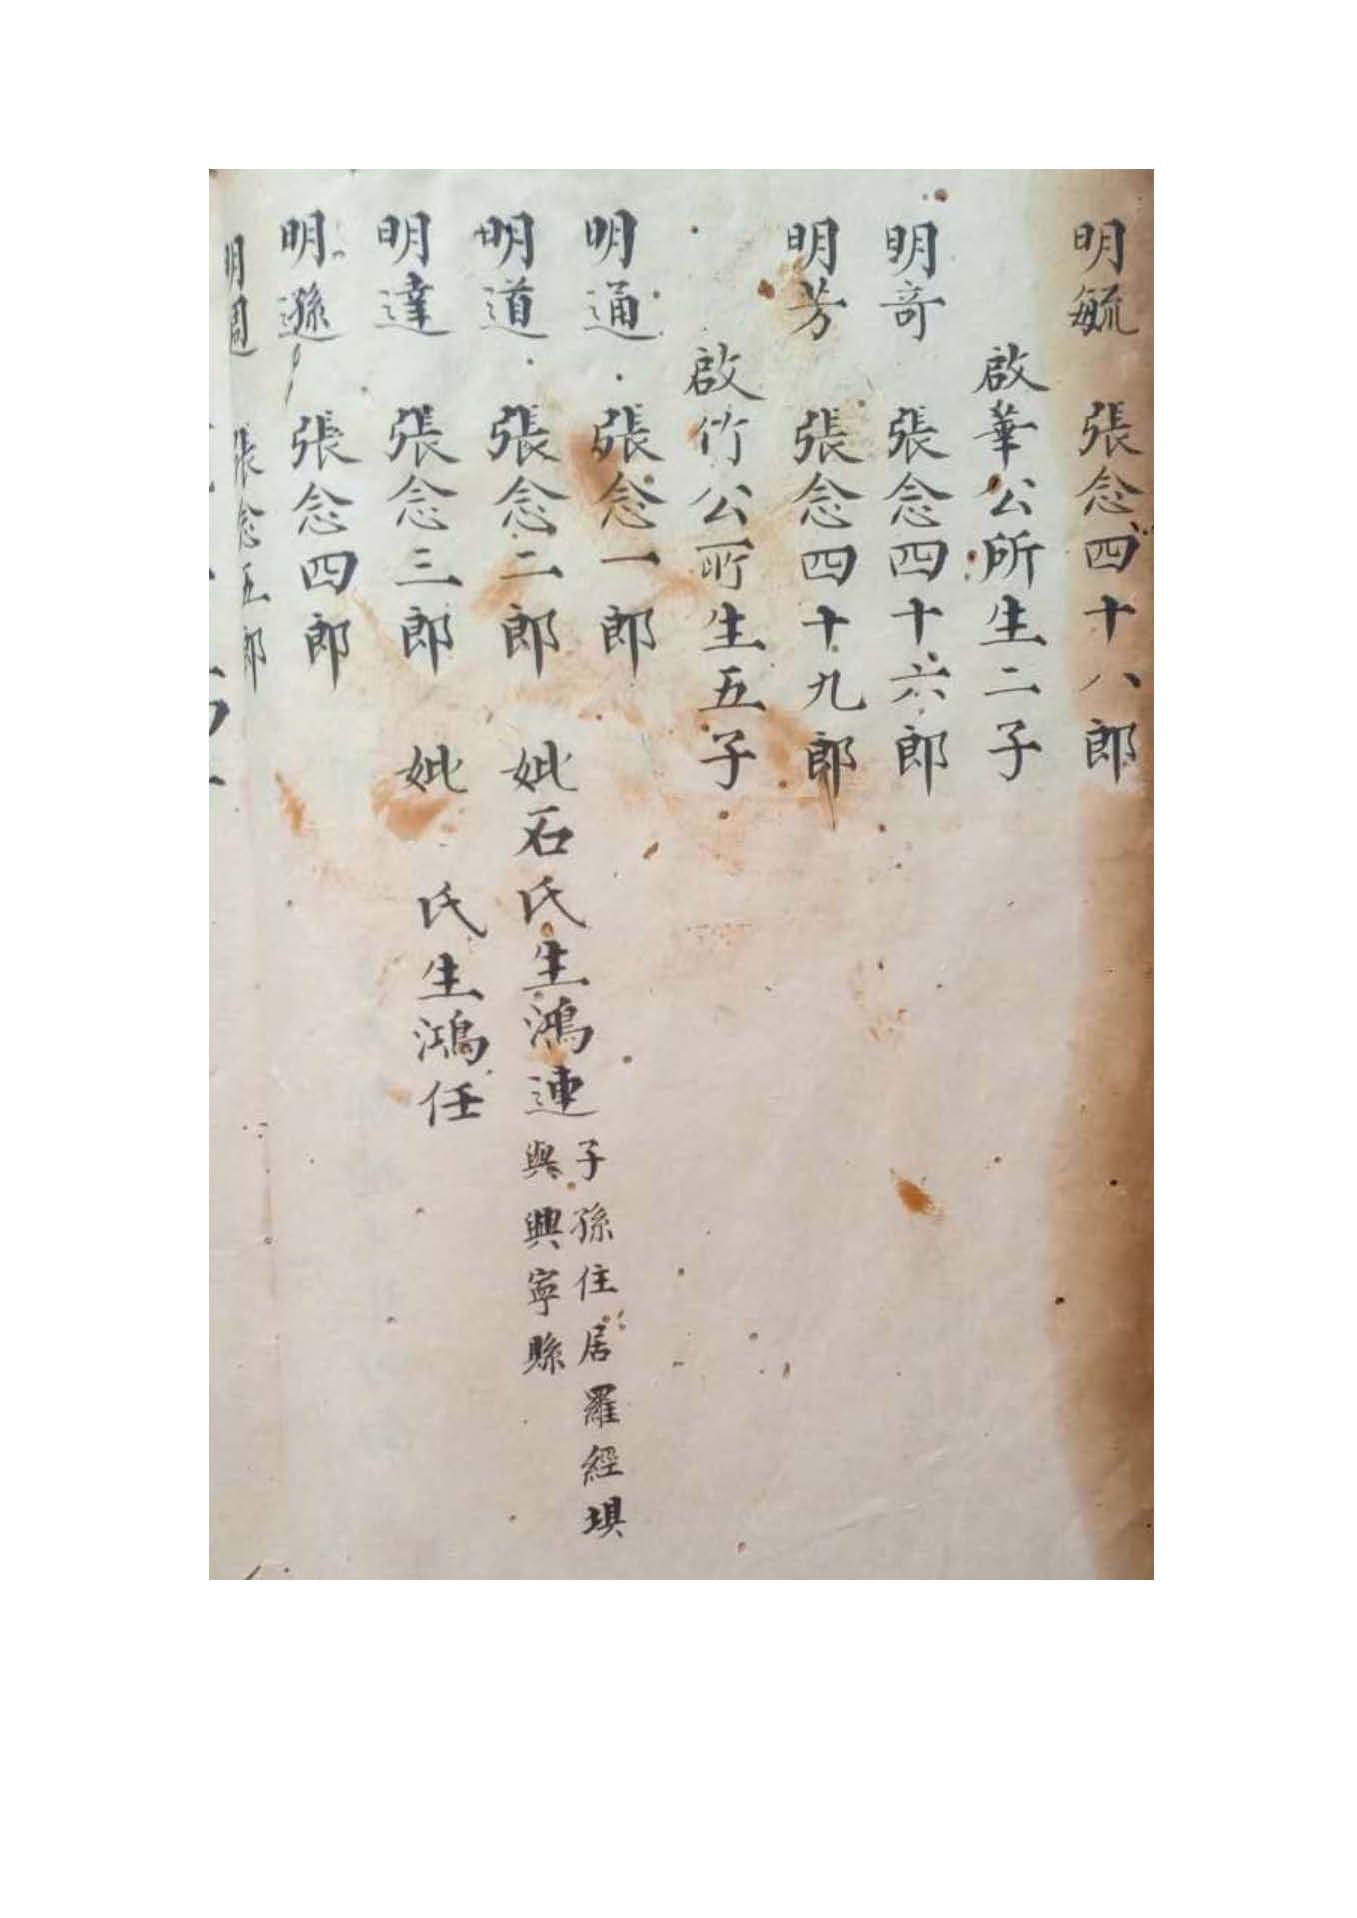 明毓 張念四十八郎
啟華公所生二子
明竒 張念四十六郎
明芳 張念四十九郎
啟竹公所生五子
明通 張念一郎
明道 張念二郎 妣石氏生鴻連
子孫住居羅經垻
與興寧縣
明達 張念三郎 妣 氏生鴻任
明遜 張念四郎
明週 張念五郎